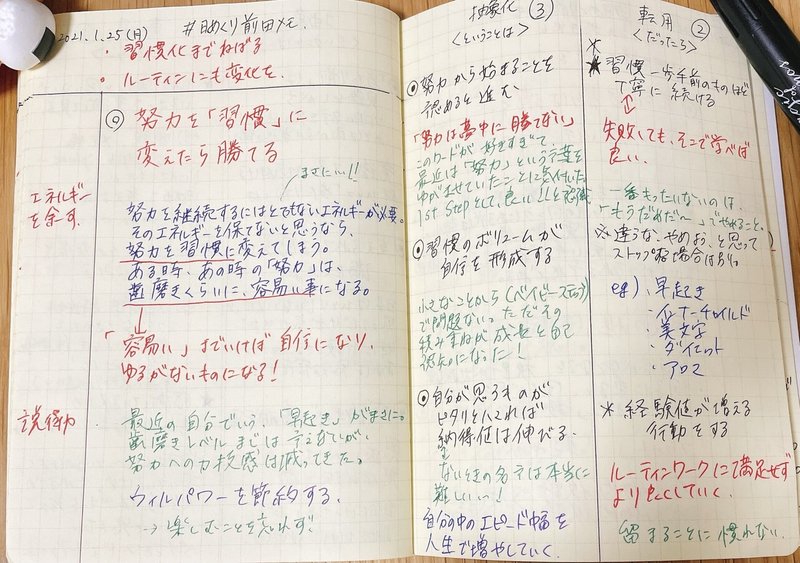 2021.1.25(月) #日めくり前田メモ.
・習慣化までねばる
・ルーティンにも変化を.
⓪ 努力を「習慣」に
変えたら勝てる
まさに…!!
エネルギー
を余す.
努力を継続するにはとてつもないエネルギーが必要。
そのエネルギーを保てないと思うなら、
努力を習慣に変えてしまう。
ある時、あの時の「努力」は、
歯磨きくらいに、容易い事になる。
↓
「容易い」までいけば自信になり、
ゆるがないものになる!
説得力
最近の自分でいう、「早起き」がまさに。
歯磨きレベルまでは言えないが、
努力への力技感は減ってきた。
ウィルパワーを節約する.
→ 楽しむことを忘れず.
抽象化 ③
<ということは>
◎努力から始まることを
認めると進む
「努力は夢中に勝てない」
このワードが好きすぎて、
最近は「努力」という言葉を
1st Stepとして、良い!!と認識
◎習慣のボリュームが
自信を形成する
小さなことから(ベイビーステップ)
で問題ないっただその
積み重ねが成長と自己
認知になった!
◎自分が思うものが
ピタリと入れば
納得値は伸びる.
ないときの名言は本当に
難しいっ!
自分の中のエピソード幅を
人生で増やしていく.
転用 ②
<だったら>
*
* 習慣一歩手前のものほど
丁寧に続ける
↕
失敗しても、そこで学べば
良い.
一番もったいないのは、
「もうだめだ〜」でやめること。
※違うな、やめよう、と思って
ストップする場合は別.
eg)・早起き
・インナーチャイルド
・美文字
・ダイエット
・アロマ
* 経験値が増える
行動をする
ルーティンワークにて満足せず
より良くしていく.
留まることに慣れない.